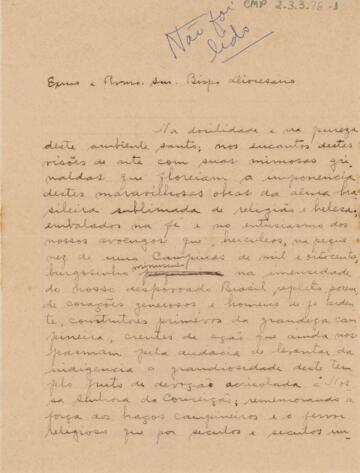 CMP 2.3.3.78-1
Não foi
lido
Exmo e Revmo. Snr. Bispo Diocesano
Na docilidade e na pureza
deste ambiente santo; nos encantos destas
visões de arte com suas mimosas gri
naldas que floreiam a imponencia
destas maravilhosas obras da alma bra
sileira sublimada de religião e beleza;
embalados na fé e no entusiasmo dos
nossos avoengos que, herculeos, na peque
nez de uma Campinas de mil e oitocentos,
burgosinho minusculo na imensidade
do nosso despovoado Brasil repleto, porem,
de corações generosos e homens de fé arden
te, construtores primévos da grandeza cam
pineira, crentes de ação que ainda nos
pasmam pela audacia de levantar da
indigencia a grandiosidade deste tem
plo fruto de devoção a Nos
sa Senhora da Conceição; rememorando a
força dos braços campineiros e o fervor
religioso que por seculos e seculos